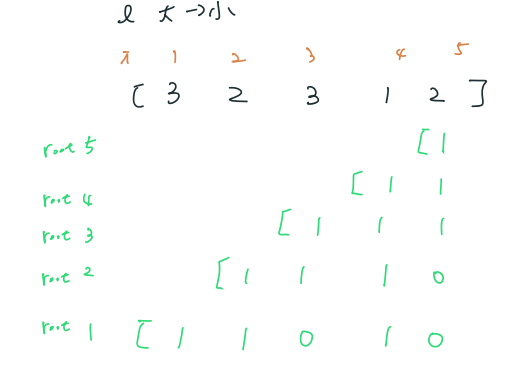 l 大→小
i 1 2 3 4 5
[ 3 2 3 1 2 ]
root 5 [ 1
root 4 [ 1 1
root 3 [ 1 1 1
root 2 [ 1 1 1 0
root 1 [ 1 1 0 1 0